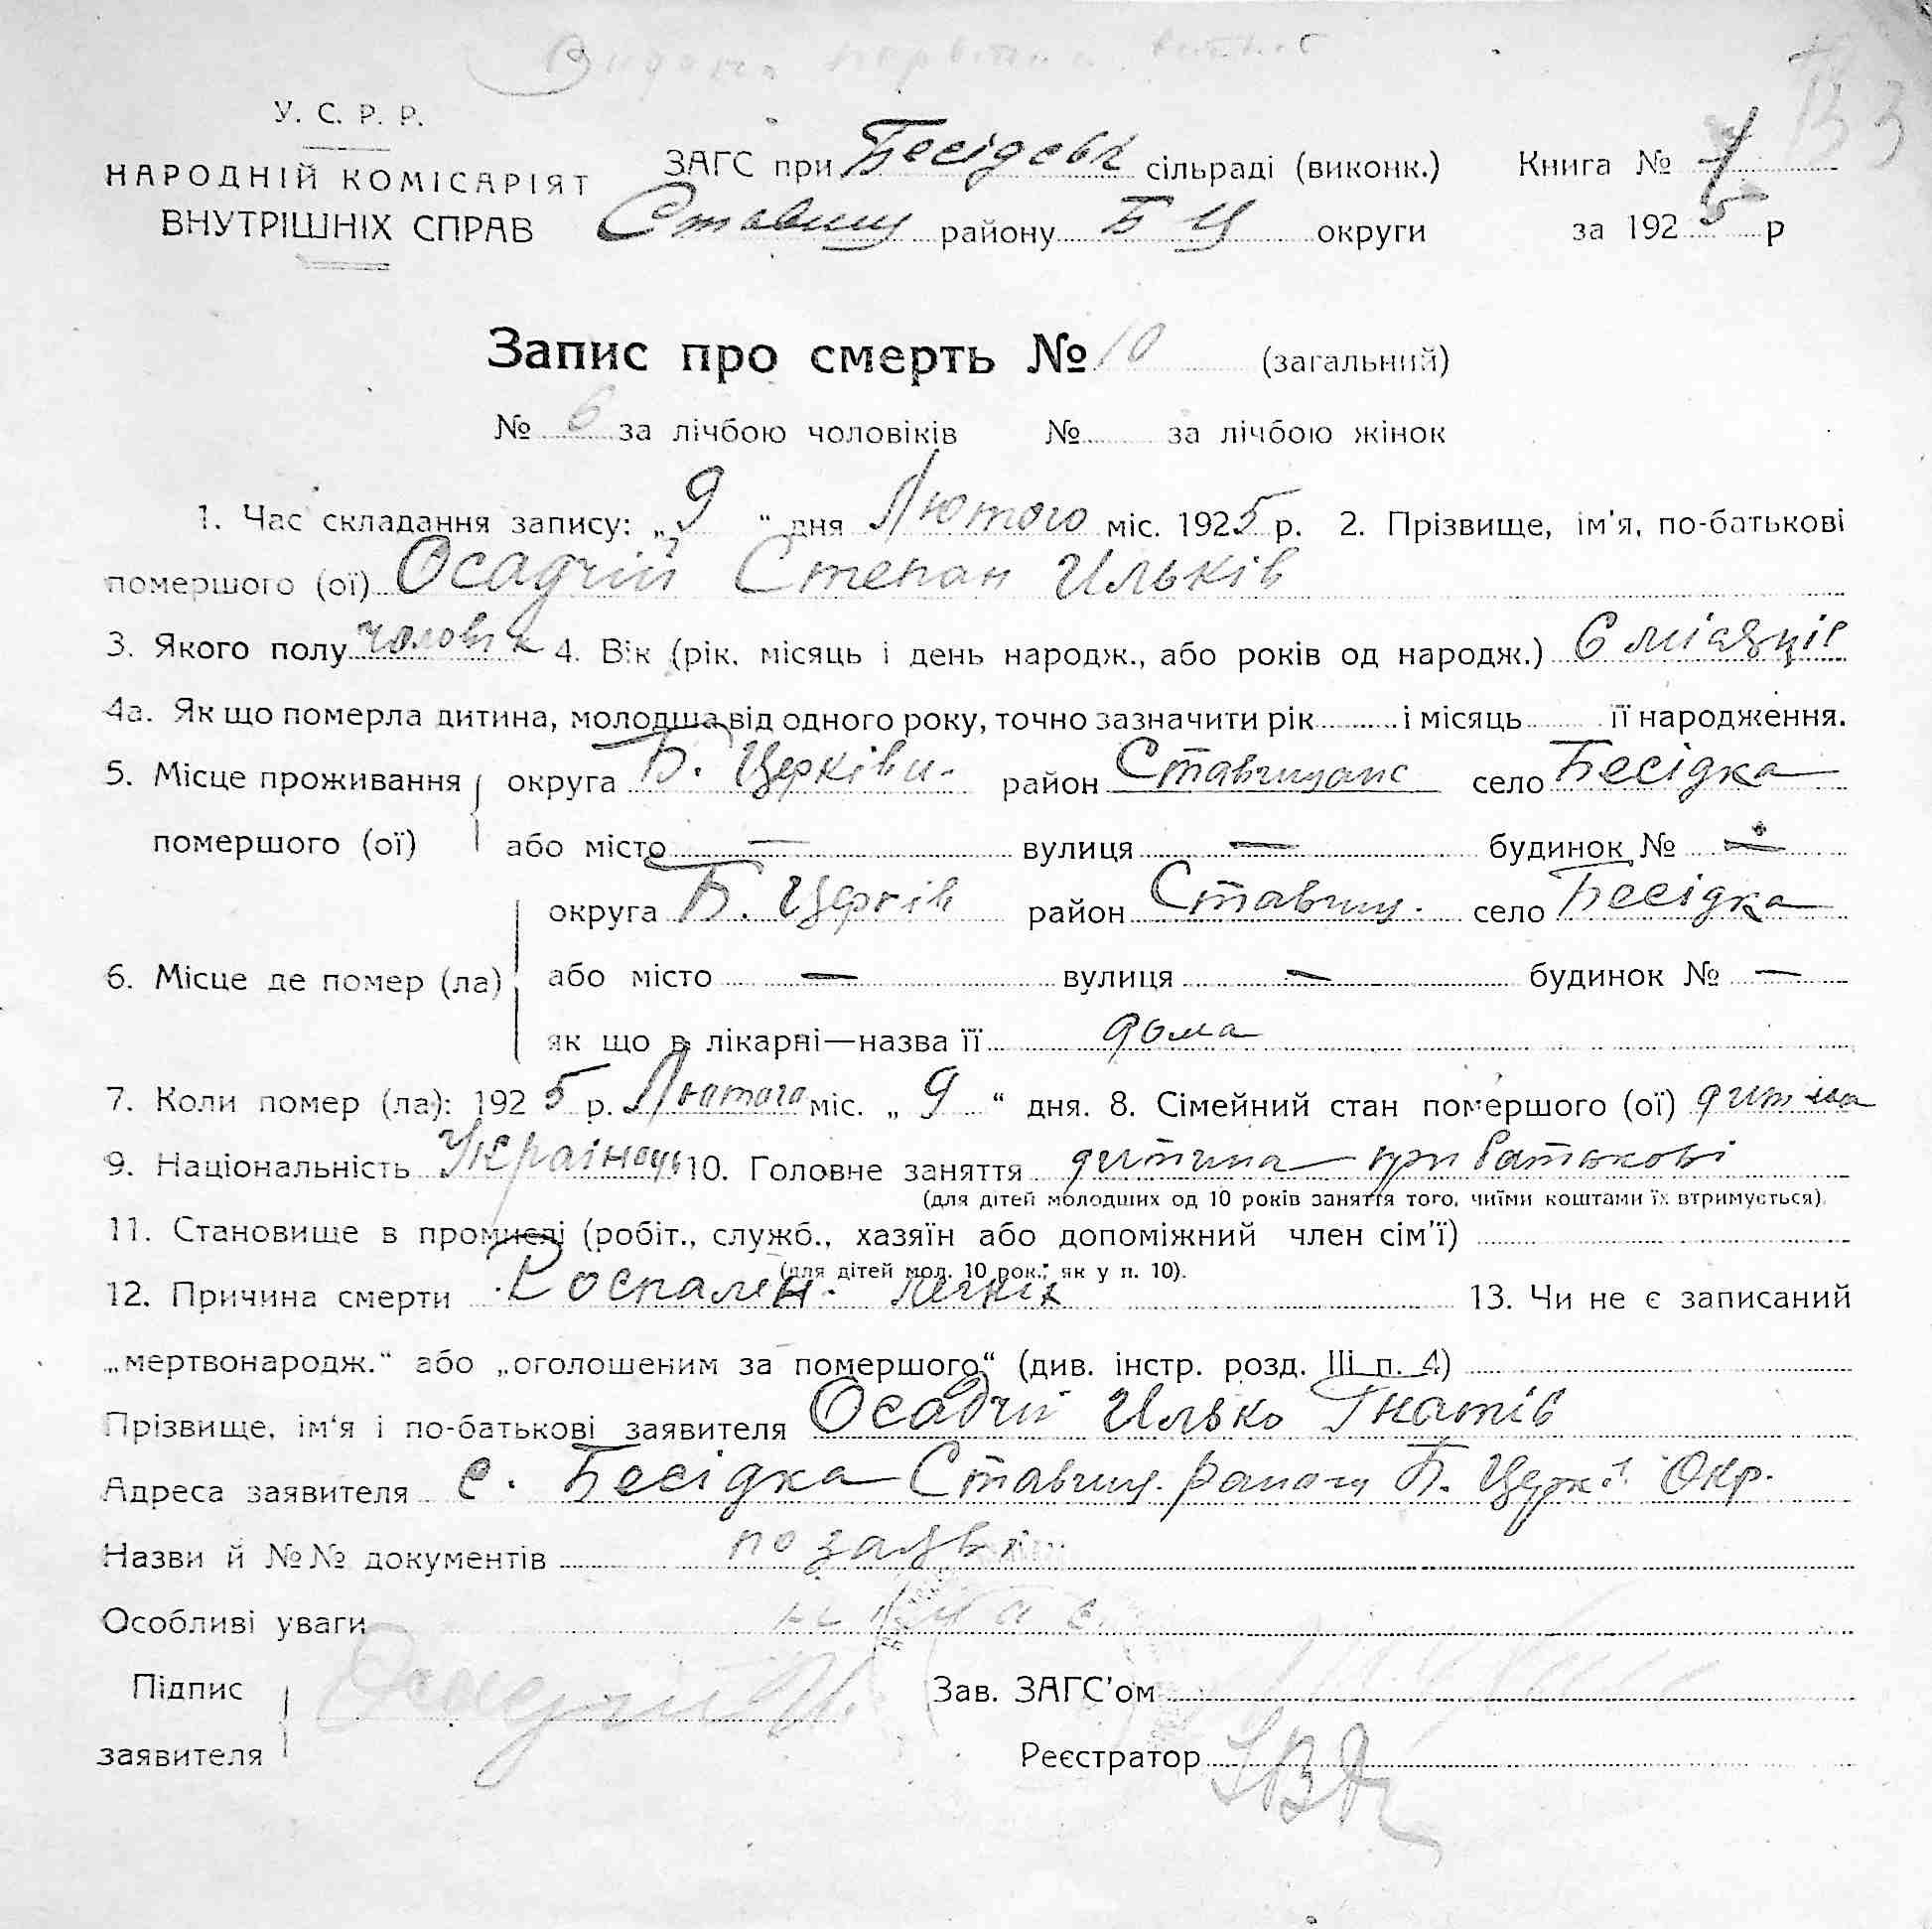 У. С. Р. Р.
НАРОДНІЙ КОМІСАРІЯТ
ВНУТРІШНІХ СПРАВ
ЗАГС при Бесідські сільраді (виконк.) Книга №
Ставищ району Б Ц округи за 1925 р
Запис про смерть № 10 (загальний)
№ 6 за лічбою чоловіків № за лічбою жінок
1. Час складання запису: „9“ дня Лютого міс. 1925 р. 2. Прізвище, ім'я, по-батькові
помершого (ої) Осадчій Степан Ильків
3. Якого полу чоловік 4. Вік (рік, місяць і день народж., або років од народж.) 6 місяців
4а. Як що померла дитина, молодша від одного року, точно зазначити рік і місяць її народження.
5. Місце проживання помершого (ої) округа Б. Церківн. район Ставищанс село Бесідка
або місто — вулиця — будинок № —
6. Місце де помер (ла) округа Б. Церків район Ставищ. село Бесідка
або місто — вулиця — будинок № —
як що в лікарні—назва її дома
7. Коли помер (ла): 1925 р. Лютого міс. „9“ дня. 8. Сімейний стан помершого (ої) дитина
9. Національність Українець 10. Головне заняття дитина при батькові
(для дітей молодших од 10 років заняття того, чиїми коштами їх втримується).
11. Становище в промислі (робіт., служб., хазяїн або допоміжний член сім'ї)
(для дітей мол. 10 рок.; як у п. 10).
12. Причина смерти Воспален. легких 13. Чи не є записаний
„мертвонародж.“ або „оголошеним за помершого“ (див. інстр. розд. III п. 4)
Прізвище, ім'я і по-батькові заявителя Осадчий Илько Гнатів
Адреса заявителя с. Бесідка Ставищ. району Б. Церк. Окр.
Назви й №№ документів по заяві
Особливі уваги немає
Підпис
заявителя Осадчий И.
Зав. ЗАГС'ом
Реєстратор